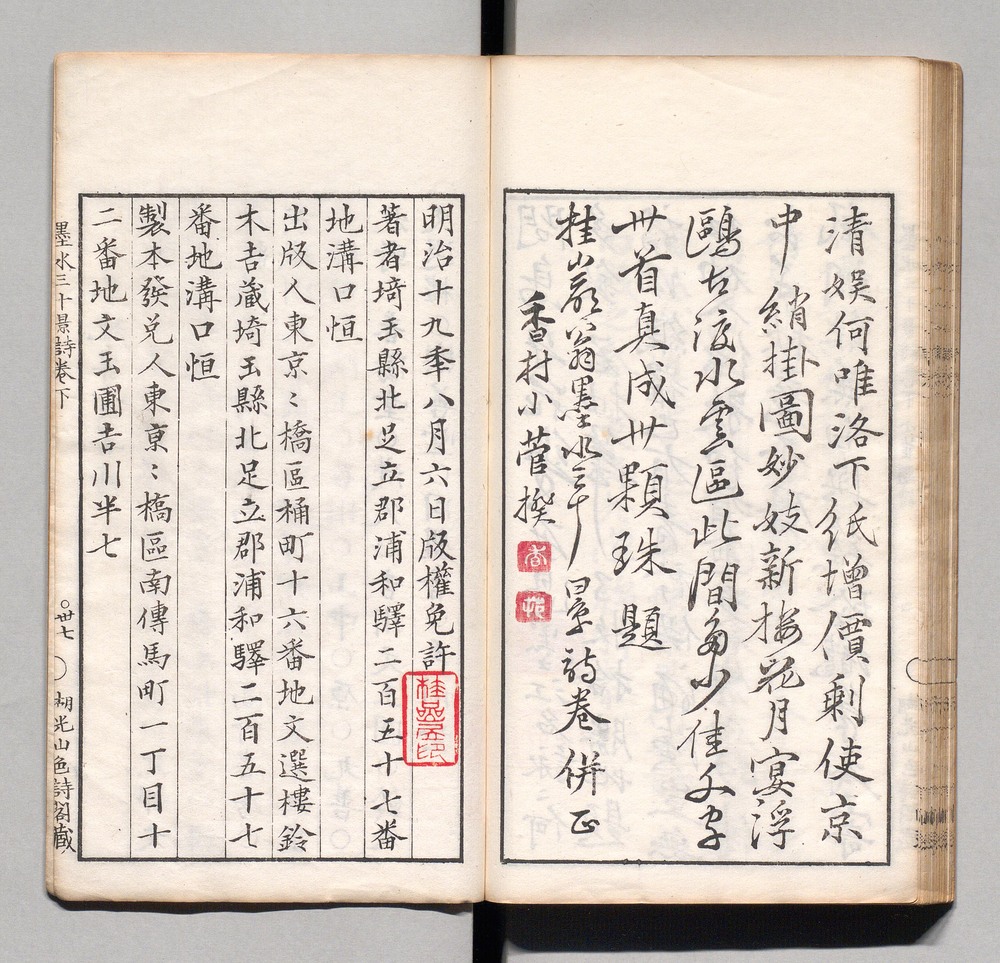 清娯何唯洛下紙增價剩使京
中綃掛圖妙妓新接花月宴浮
鷗古渡水雲區此間多少佳文字
卅首真成卅顆珠 題
桂嵓翁墨水三十景詩卷併正
香村小菅揆
香
邨
明治十九季八月六日版權免許
著者埼玉縣北足立郡浦和驛二百五十七番
地溝口恒
出版人東京々橋區桶町十六番地文選樓鈴
木吉藏埼玉縣北足立郡浦和驛二百五十七
番地溝口恒
製本發兌人東亰々橋區南傳馬町一丁目十
二番地文玉圃吉川半七
墨水三十景詩卷下
○卅七
湖光山色詩閣藏